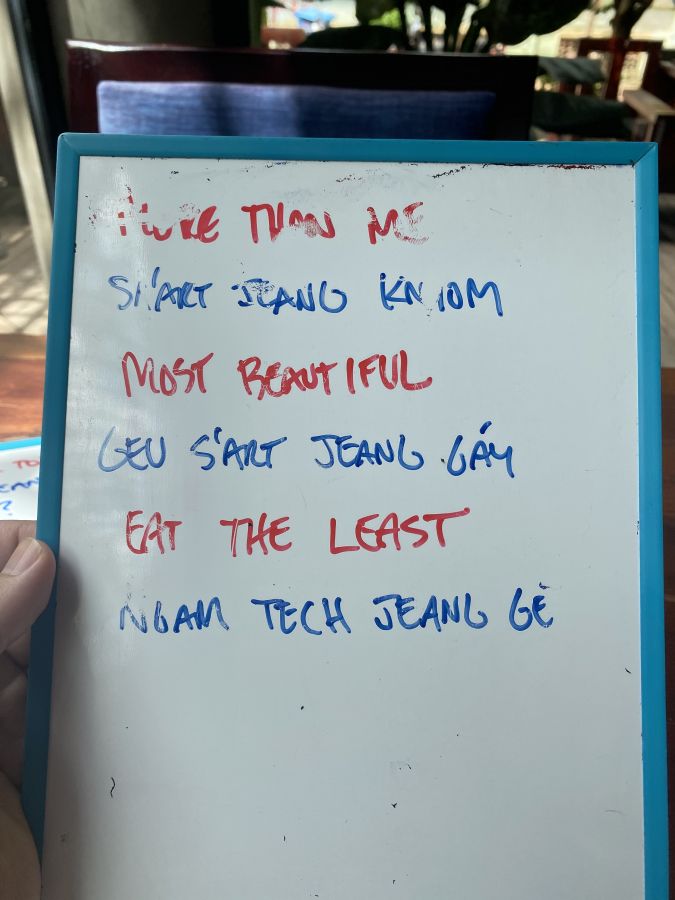 MORE THAN ME
S'ART JEANG KNIOM
MOST BEAUTIFUL
GEU S'ART JEANG GÁY
EAT THE LEAST
NGAM TECH JEANG GÈ
?